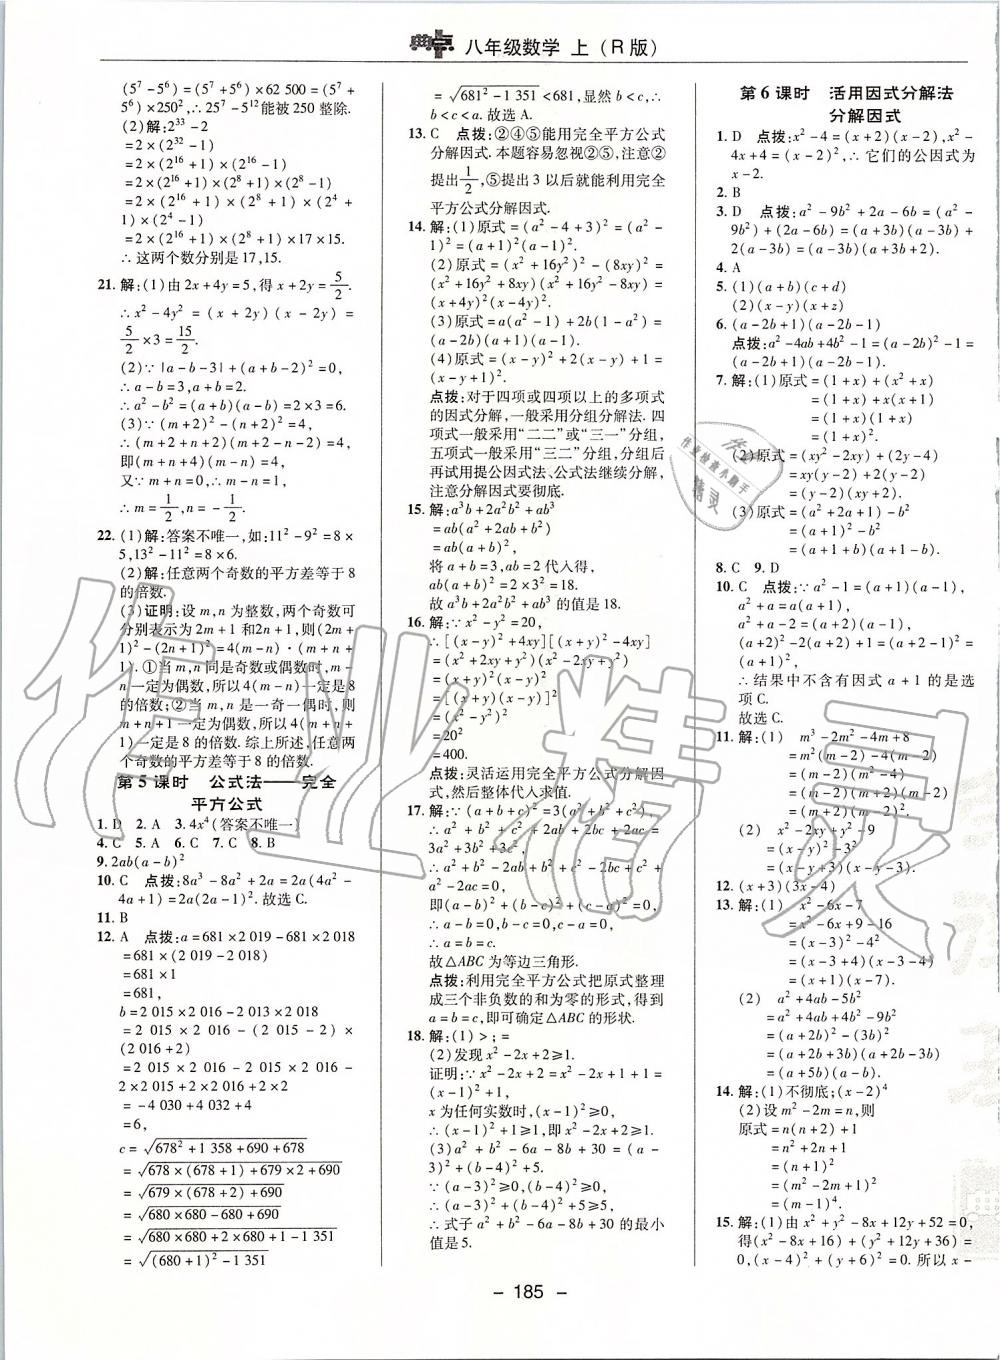 典点 八年级数学 上（R版）
(5⁷-5⁶)=(5⁷+5⁶)×62 500=(5⁷+
5⁶)×250²,∴25⁷-5¹²能被250整除.
(2)解:2³³-2
=2×(2³²-1)
=2×(2¹⁶+1)×(2¹⁶-1)
=2×(2¹⁶+1)×(2⁸+1)×(2⁸-1)
=2×(2¹⁶+1)×(2⁸+1)×(2⁴+
1)×(2⁴-1)
=2×(2¹⁶+1)×(2⁸+1)×17×15.
∴这两个数分别是17,15.
21.解:(1)由2x+4y=5,得x+2y=5/2.
∴x²-4y²=(x+2y)(x-2y)=
5/2×3=15/2.
(2)∵|a-b-3|+(a+b-2)²=0,
∴a-b=3,a+b=2.
∴a²-b²=(a+b)(a-b)=2×3=6.
(3)∵(m+2)²-(n+2)²=4,
∴(m+2+n+2)(m+2-n-2)=4,
即(m+n+4)(m-n)=4,
又∵m+n=0,∴m-n=1,
∴m=1/2,n=-1/2.
22.(1)解:答案不唯一,如:11²-9²=8×
5,13²-11²=8×6.
(2)解:任意两个奇数的平方差等于8
的倍数.
(3)证明:设m,n为整数,两个奇数可
分别表示为2m+1和2n+1,则(2m+
1)²-(2n+1)²=4(m-n)·(m+n+
1).①当m,n同是奇数或偶数时,m-
n一定为偶数,所以4(m-n)一定是8
的倍数;②当m,n是一奇一偶时,则
m+n+1一定为偶数,所以4(m+n+
1)一定是8的倍数.综上所述,任意两
个奇数的平方差等于8的倍数.
第5课时 公式法——完全
平方公式
1.D 2.A 3.4x⁴(答案不唯一)
4.C 5.A 6.C 7.C 8.B
9.2ab(a-b)²
10.C 点拨:8a³-8a²+2a=2a(4a²-
4a+1)=2a(2a-1)².故选C.
11.B
12.A 点拨:a=681×2 019-681×2 018
=681×(2 019-2 018)
=681×1
=681,
b=2 015×2 016-2 013×2 018
=2 015×2 016-(2 015-2)×
(2 016+2)
=2 015×2 016-2 015×2 016-
2×2 015+2×2 016+2×2
=-4 030+4 032+4
=6,
c=√(678²+1 358+690+678)
=√(678×(678+1)+679×2+690)
=√(679×(678+2)+690)
=√(680×680-680+690)
=√(680×680+2×680+1-1 351)
=√((680+1)²-1 351)
=√(681²-1 351)<681,显然b<c,∴
b<c<a.故选A.
13.C 点拨:②④⑤能用完全平方公式
分解因式.本题容易忽视②⑤,注意②
提出1/2,⑤提出3以后就能利用完全
平方公式分解因式.
14.解:(1)原式=(a²-4+3)²=(a²-
1)²=(a+1)²(a-1)².
(2)原式=(x²+16y²)²-(8xy)²=
(x²+16y²+8xy)(x²+16y²-8xy)=
(x+4y)²(x-4y)².
(3)原式=a(a²-1)+2b(1-a²)=
(a-2b)(a+1)(a-1).
(4)原式=(x-y)²+2(x-y)+1=
(x-y+1)².
点拨:对于四项或四项以上的多项式
的因式分解,一般采用分组分解法.四
项式一般采用“二二”或“三一”分组,
五项式一般采用“三二”分组,分组后
再试用提公因式法、公式法继续分解,
注意分解因式要彻底.
15.解:a³b+2a²b²+ab³
=ab(a²+2ab+b²)
=ab(a+b)²,
将a+b=3,ab=2代入得,
ab(a+b)²=2×3²=18.
故a³b+2a²b²+ab³的值是18.
16.解:∵x²-y²=20,
∴[(x-y)²+4xy][(x+y)²-4xy]
=(x²+2xy+y²)(x²-2xy+y²)
=(x+y)²(x-y)²
=[(x+y)(x-y)]²
=(x²-y²)²
=20²
=400.
点拨:灵活运用完全平方公式分解因
式,然后整体代入求值.
17.解:∵(a+b+c)²=3(a²+b²+c²),
∴a²+b²+c²+2ab+2bc+2ac=
3a²+3b²+3c²,
a²+b²-2ab+b²+c²-2bc+c²+
a²-2ac=0,
即(a-b)²+(b-c)²+(c-a)²=0,
∴a-b=0,b-c=0,c-a=0,
∴a=b=c.
故△ABC为等边三角形.
点拨:利用完全平方公式把原式整理
成三个非负数的和为零的形式,得到
a=b=c,即可确定△ABC的形状.
18.解:(1)>;=
(2)发现x²-2x+2≥1.
证明:∵x²-2x+2=x²-2x+1+1=
(x-1)²+1,
x为任何实数时,(x-1)²≥0,
∴(x-1)²+1≥1,即x²-2x+2≥1.
(3)a²+b²-6a-8b+30=(a-3)²+
(b-4)²+5.
∵(a-3)²≥0,(b-4)²≥0,
∴(a-3)²+(b-4)²+5≥5.
∴式子a²+b²-6a-8b+30的最小
值是5.
第6课时 活用因式分解法
分解因式
1.D 点拨:x²-4=(x+2)(x-2),x²-
4x+4=(x-2)²,∴它们的公因式为
x-2.
2.B
3.D 点拨:a²-9b²+2a-6b=(a²-
9b²)+(2a-6b)=(a+3b)(a-3b)+
2(a-3b)=(a-3b)(a+3b+2).
4.A
5.(1)(a+b)(c+d)
(2)(x-y)(x+z)
6.(a-2b+1)(a-2b-1)
点拨:a²-4ab+4b²-1=(a-2b)²-1=
(a-2b+1)(a-2b-1).
7.解:(1)原式=(1+x)+(x²+x)
=(1+x)+x(x+1)
=(1+x)(1+x)
=(1+x)².
(2)原式=(xy²-2xy)+(2y-4)
=xy(y-2)+2(y-2)
=(y-2)(xy+2).
(3)原式=(a²+2a+1)-b²
=(a+1)²-b²
=(a+1+b)(a+1-b).
8.C 9.D
10.C 点拨:∵a²-1=(a+1)(a-1),
a²+a=a(a+1),
a²+a-2=(a+2)(a-1),
(a+2)²-2(a+2)+1=(a+2-1)²=
(a+1)²,
∴结果中不含有因式a+1的是选
项C.
故选C.
11.解:(1) m³-2m²-4m+8
=m²(m-2)-4(m-2)
=(m-2)(m²-4)
=(m-2)(m+2)(m-2)
=(m+2)(m-2)².
(2) x²-2xy+y²-9
=(x-y)²-3²
=(x-y+3)(x-y-3).
12.(x+3)(3x-4)
13.解:(1) x²-6x-7
=x²-6x+9-16
=(x-3)²-4²
=(x-3+4)(x-3-4)
=(x+1)(x-7).
(2) a²+4ab-5b²
=a²+4ab+4b²-9b²
=(a+2b)²-(3b)²
=(a+2b+3b)(a+2b-3b)
=(a+5b)(a-b).
14.解:(1)不彻底;(x-2)⁴
(2)设m²-2m=n,则
原式=n(n+2)+1
=n²+2n+1
=(n+1)²
=(m²-2m+1)²
=(m-1)⁴.
15.解:(1)由x²+y²-8x+12y+52=0,
得(x²-8x+16)+(y²+12y+36)=
0,(x-4)²+(y+6)²=0.所以x-
- 185 -
作业精灵
作业检查小助手